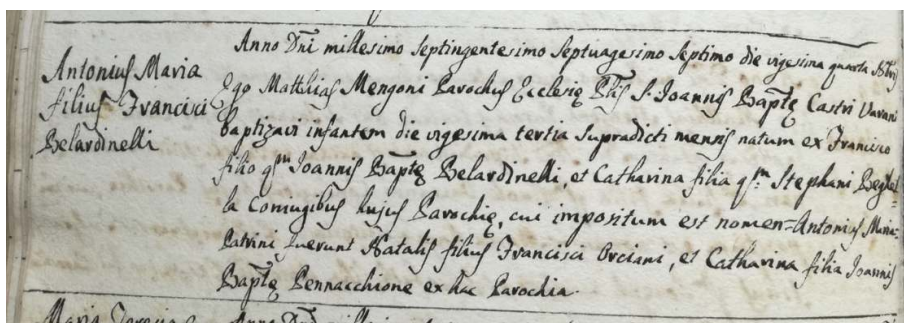 Antonius Maria
filius Francisci
Belardinelli
Anno Dni millesimo septingentesimo septuagesimo septimo die vigesima quarta
Ego Matthias Mengoni Parochus Ecclesię Pltis S. Joannis Baptę Castri Varani
baptizavi infantem die vigesima tertia supradicti mensis natum ex Francisco
filio qm Joannis Baptę Belardinelli, et Catharina filia qm Stephani
la Coniugibus hujus Parochię, cui impositum est nomen=Antonius Maria=
Patrini fuerunt Natalis filius Francisci Orciani, et Catharina filia Joannis
Baptę Pennacchione ex hac Parochia.
Maria Teresia